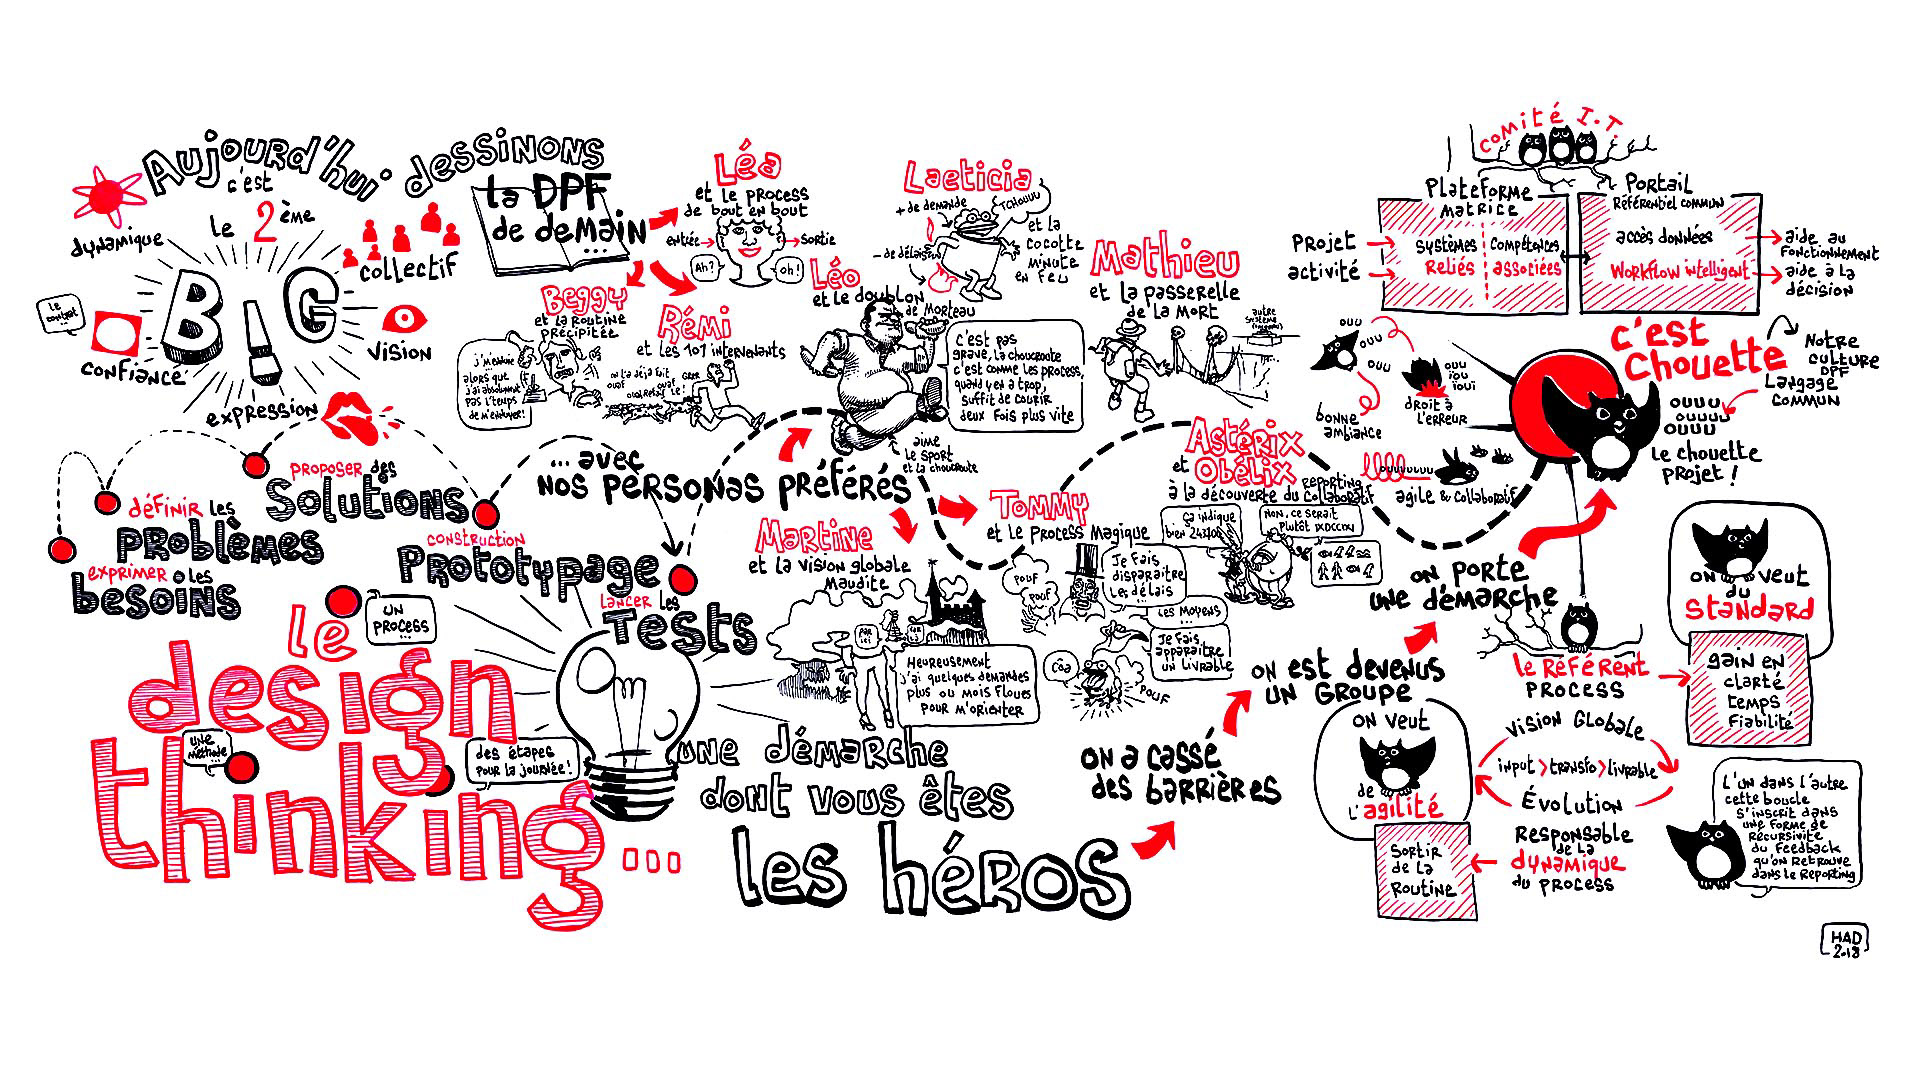 Aujourd'hui dessinons
la DPF
de demain
...
c'est
le 2ème
BIG
dynamique
collectif
le
contrat
...
confiance
vision
expression
définir les
problèmes
exprimer les
besoins
proposer des
solutions
construction
Prototypage
lancer les
Tests
le
design
thinking ...
un
process
...
une
méthode
des étapes
pour la journée!
une démarche
dont vous êtes
les héros
... avec
nos personas préférés
Léa
et le process
de bout en bout
entrée
sortie
Ah?
oh!
Beggy
et la routine
précipitée
alors que
j'ai absolument
pas l'temps
de m'ennuyer!
Rémi
et les 101 intervenants
on l'a déjà fait
ouaf
Léo
et le doublon
de Morteau
c'est pas
grave, la choucroute
c'est comme les process,
quand y en a trop,
suffit de courir
deux fois plus vite
aime
le sport
et la choucroute
Laeticia
+ de demande
- de délais
Tchouuu
et la
cocotte
minute
en feu
Mathieu
et la passerelle
de la mort
autre
système
Martine
et la vision globale
maudite
par
ici
par
là
Heureusement
j'ai quelques demandes
plus ou mois floues
pour m'orienter
Tommy
et le process magique
pouf
pouf
Je fais
disparaitre
les délais
...
les moyens
...
Je fais
apparaitre
un livrable
côa
pouf
Astérix
et Obélix
à la découverte du reporting
collaboratif
ça indique
bien
Non, ce serait
plutôt
on a cassé
des barrières
on est devenus
un groupe
on porte
une démarche
Comité I.T.
Plateforme
matrice
Projet
activité
systèmes
Reliés
compétences
associées
Portail
Référentiel commun
accès données
Workflow intelligent
aide au
fonctionnement
aide à la
décision
c'est
chouette
Notre
culture
DPF
Langage
commun
ouuu
ouuuu
ouuu
le chouette
projet !
ouu
ouu
ouu
bonne
ambiance
ouu
iou
ioui
droit à
l'erreur
ouuuuuuu
agile & collaboratif
on veut
du
standard
gain en
clarté
temps
fiabilité
le Référent
process
vision globale
input > transfo > livrable
Évolution
Responsable
de la
dynamique
du process
on veut
de
l'agilité
Sortir
de la
Routine
L'un dans l'autre
cette boucle
s'inscrit dans
une forme de
récursivité
du feedback
qu'on retrouve
dans le reporting
HAD
2018